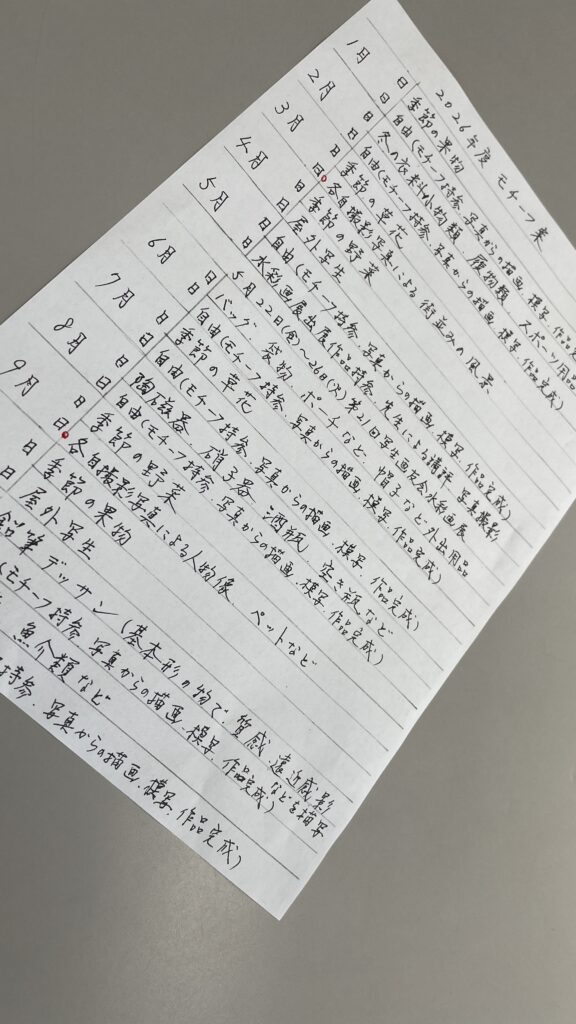 2026年度 モチーフ案
1月 日 季節の果物
日 自由(モチーフ持参.写真からの描画.模写.作品完
2月 日 冬の衣料小物類、履物類、スポーツ用品
日 自由(モチーフ持参.写真からの描画.模写.作品完成)
3月 日 季節の草花
日 各自撮影写真による街並みの風景
4月 日 季節の野菜
日 屋外写生
5月 日 自由(モチーフ持参.写真からの描画.模写.作品完成)
日 水彩画展出展作品持参 先生による講評、写真撮影
5月22日(金)〜26日(火) 第21回写生画友会水彩画展
6月 日 バッグ、袋物、ポーチなど、帽子など外出用品
日 自由(モチーフ持参.写真からの描画.模写.作品完成)
7月 日 季節の草花
日 自由(モチーフ持参.写真からの描画.模写.作品完成)
8月 日 陶磁器、硝子器、酒瓶、空き瓶など
日 自由(モチーフ持参.写真からの描画.模写.作品完成)
9月 日 季節の野菜
日 各自撮影写真による人物像、ペットなど
日 季節の果物
日 屋外写生
鉛筆デッサン(基本形の物で、質感、遠近感、影などを描写
(モチーフ持参.写真からの描画.模写.作品完成)
魚介類など
持参.写真からの描画.模写.作品完成)